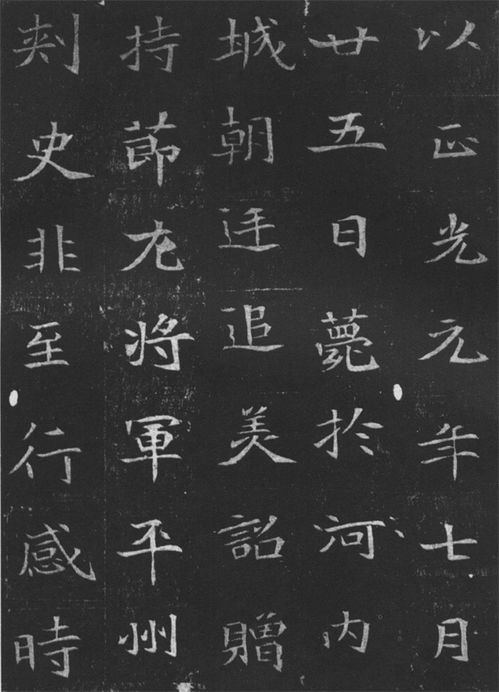 以正光元年七月
廿五日薨於河内
城朝廷追美詔贈
持節左将軍平州
刺史非至行感時